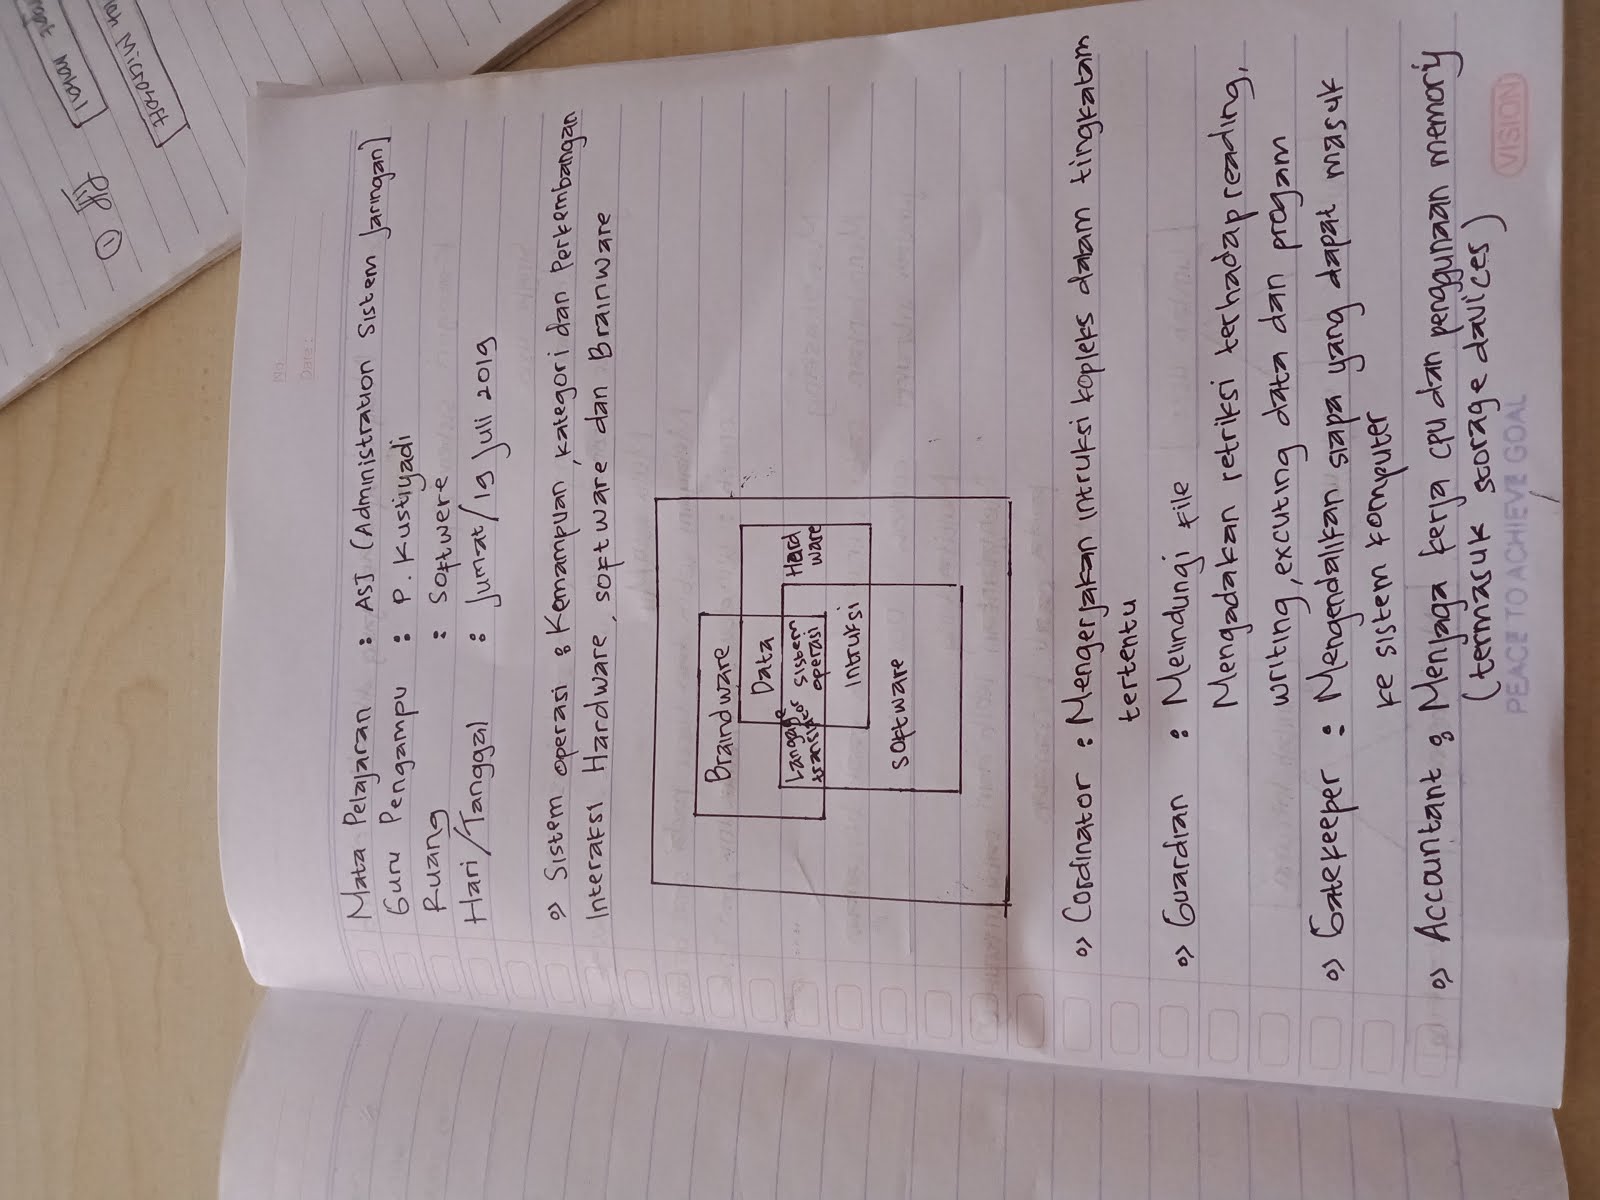 No
Date:
Mata Pelajaran : ASJ (Administration Sistem Jaringan)
Guru Pengampu : P. Kustiyadi
Ruang : Softwere
Hari/Tanggal : Jumat/19 Juli 2019
o) Sistem operasi : Kemampuan, kategori dan Perkembangan
Interaksi Hardware, software dan Brainware
Braindware
Data
Hard
ware
Langage
translator
Sistem
operasi
Intruksi
Software
o) Cordinator : Mengerjakan intruksi kopleks dalam tingkatam
tertentu
o) Guardian : Melindungi file
Mengadakan retriksi terhadap reading,
writing, excuting data dan progam
o) Gatekeeper : Mengendalikan siapa yang dapat masuk
ke sistem komputer
o) Accountant : Menjaga kerja cpu dan penggunaan memory
(termasuk storage davices)
PEACE TO ACHIEVE GOAL
VISION
①